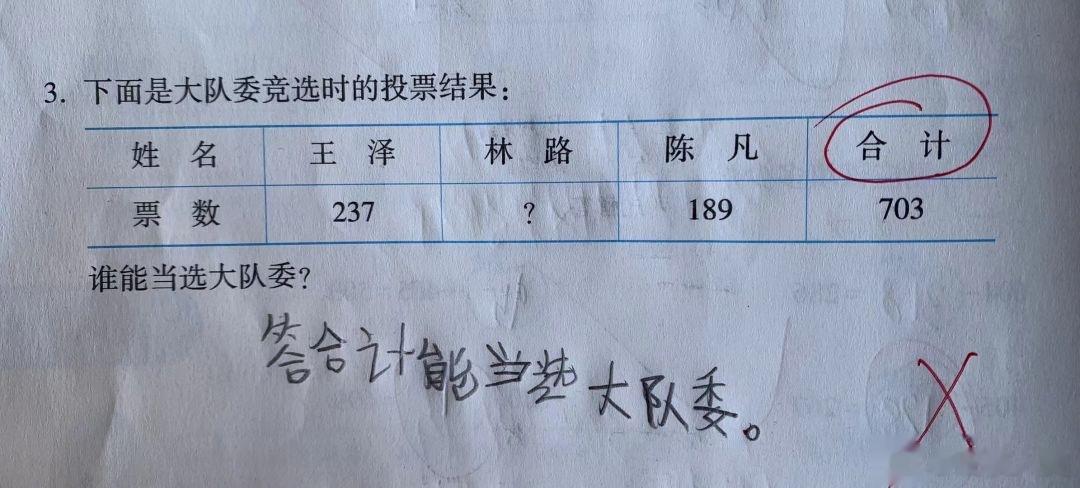 3. 下面是大队委竞选时的投票结果：
姓 名 王 泽 林 路 陈 凡 合 计
票 数 237 ? 189 703
谁能当选大队委?
答合计能当选大队委。